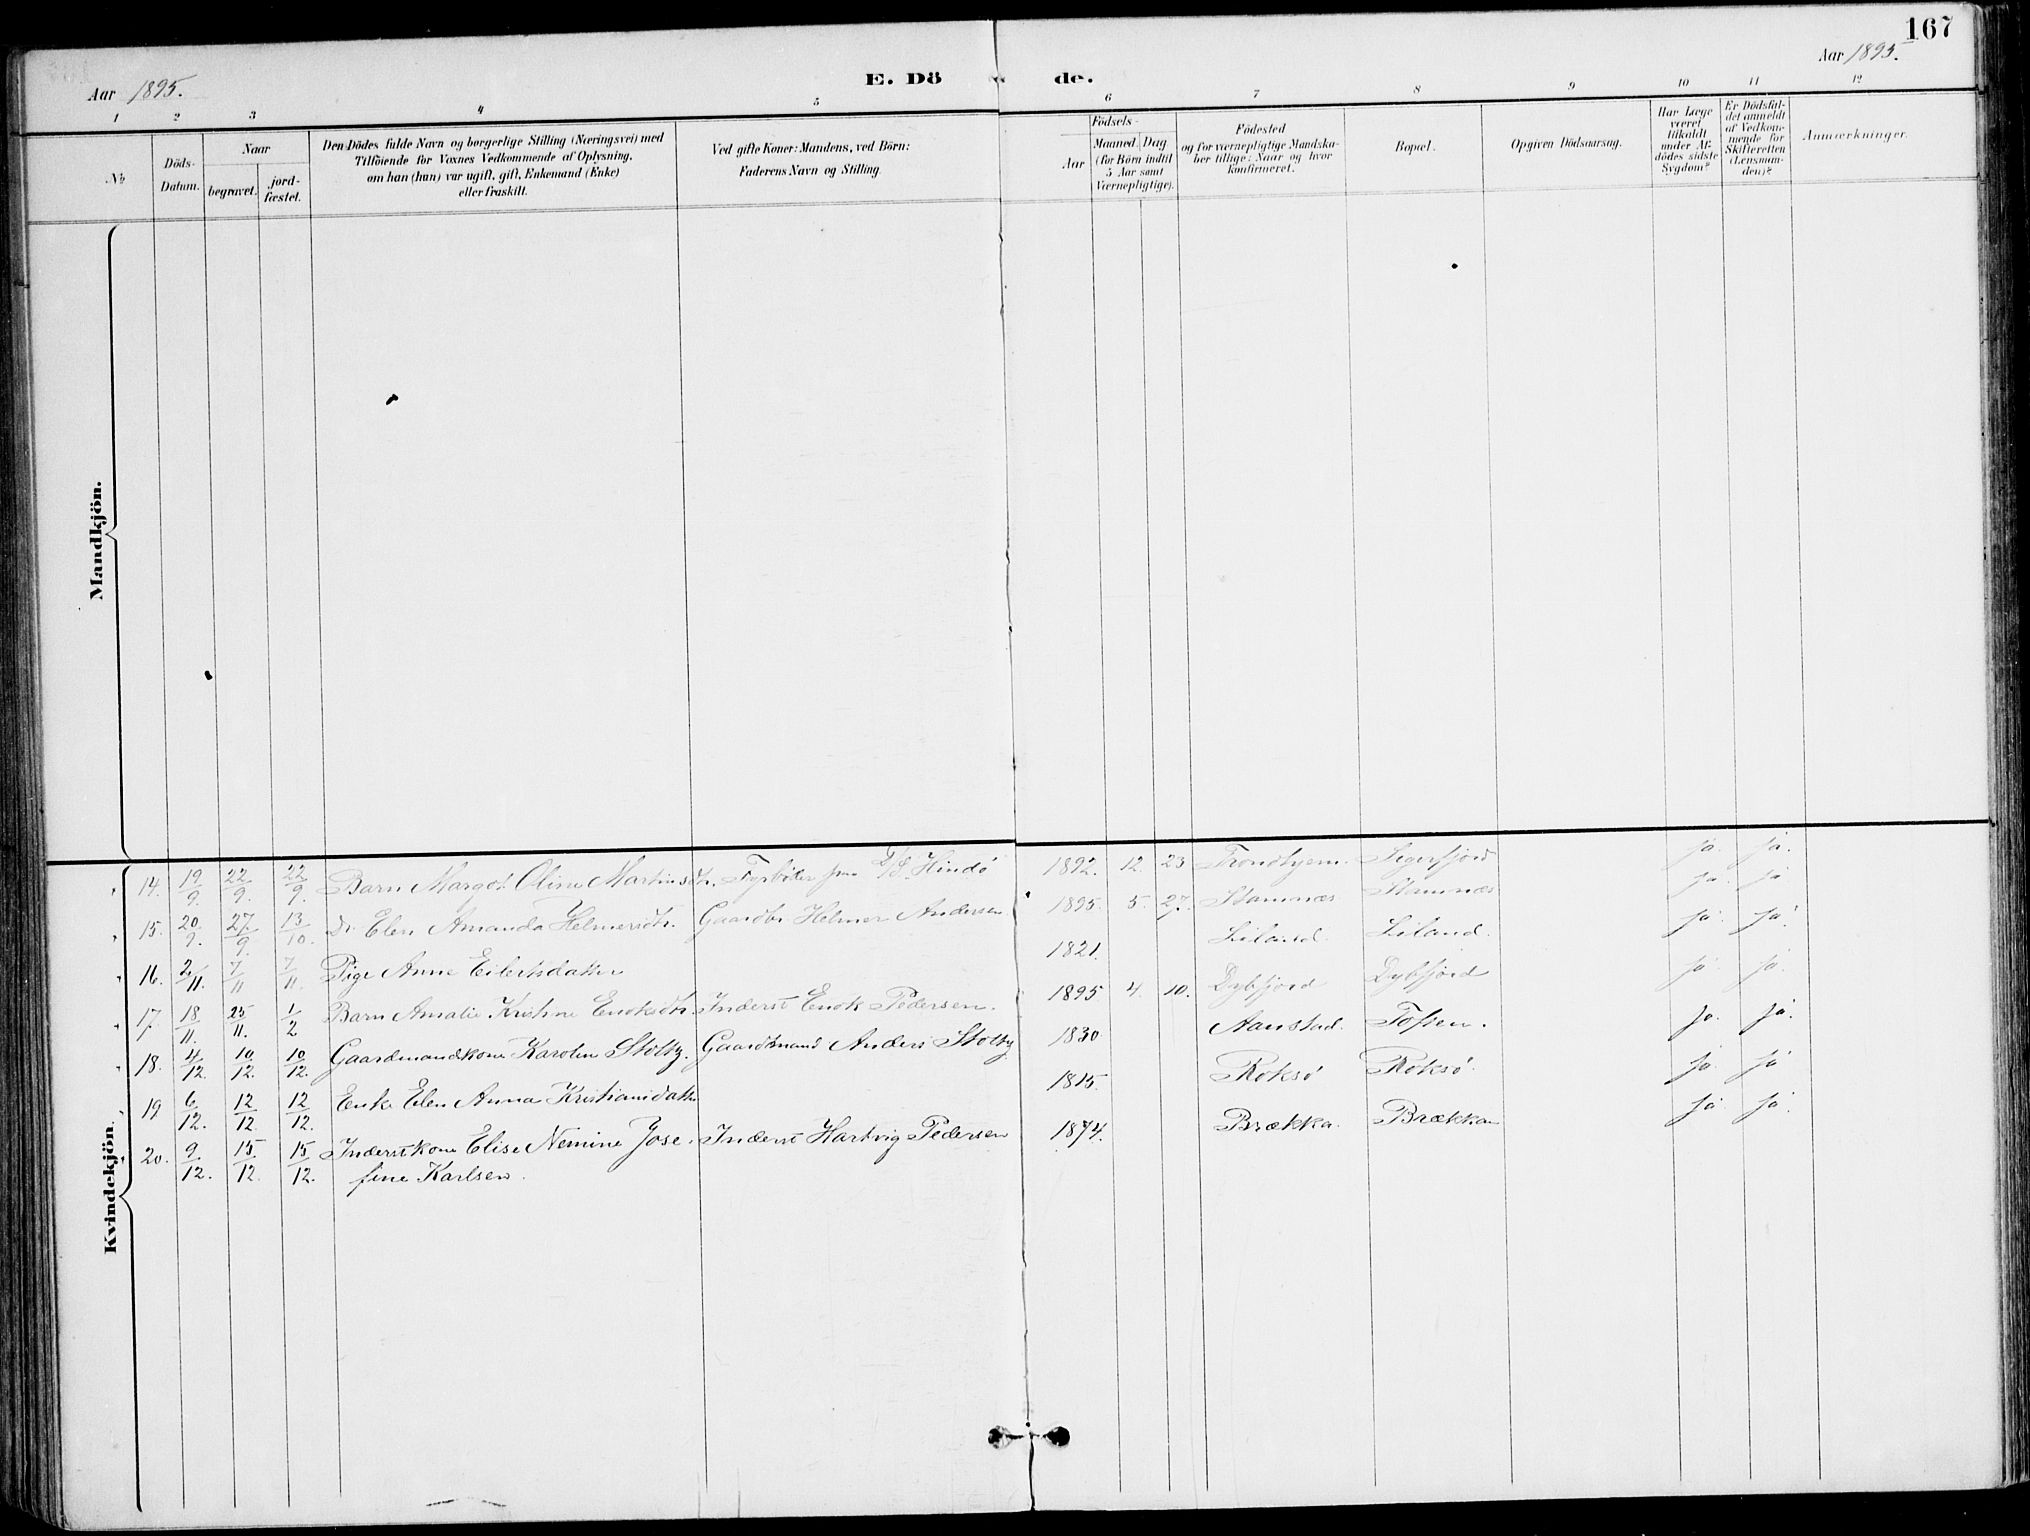 167
Aar 1895.
E. Dö de.
Aar 1895.
1 2 3 4 5 6 7 8 9 10 11 12
№
Döds-Datum.
Naar
begravet.
jord-fæstet.
Den Dödes fulde Navn og borgerlige Stilling (Næringsvei) med
Tilföiende for Voxnes Vedkommende af Oplysning,
om han (hun) var ugift, gift, Enkemand (Enke)
eller fraskilt.
Ved gifte Koner: Mandens, ved Börn:
Faderens Navn og Stilling.
Födsels-
Aar
Maaned. Dag
(for Börn indtil
5 Aar samt
Værnepligtige).
Födested
og for værnepligtige Mandska-
ber tillige: Naar og hvor
konfirmeret.
Bopæl.
Opgiven Dödsaarsag.
Har Læge
været
tilkaldt
under Af-
dödes sidste
Sygdom?
Er Dödsfal-
det anmeldt
af Vedkom-
mende for
Skifteretten
(Lensman-
den)?
Anmærkninger.
Mandkjön.
Kvindekjön.
14. 19/9. 22/9. 22/9. Barn Margot Oline Martinsdtr. Fyrböter D/S. Hindö 1892. 12. 23 Trondhjem. Sigerfjord ja. ja.
15. 20/9. 27/9. 13/10. Do Elen Amanda Helmersdtr. Gaardbr. Helmer Andersen 1895. 5. 27. Stamnæs Stamnæs ja. ja
16. 2/11. 7/11 7/11. Pige Anne Eilertsdatter 1821. Liland. Liland. ja. ja.
17. 18/11. 25/11. 1/2 Barn Amalie Kristine Enoksdtr. Inderst Enok Pedersen. 1895 4. 10. Dybfjord Dybfjord ja. ja.
18. 4/12. 10/12. 10/12. Gaardmandskone Karolen Stoltz. Gaardmand Anders Stoltz 1830 Aanstad. Tofsen. ja. ja.
19 6/12. 12/12. 12/12. Enke Elen Anna Kristiansdatter 1815. Roksö Roksö. ja. ja
20. 9/12. 15/12. 15/12. Inderstkone Elise Nemine Jose- Inderst Hartvig Pedersen 1874. Brækka. Brækkan ja. ja.
fine Karlsen.